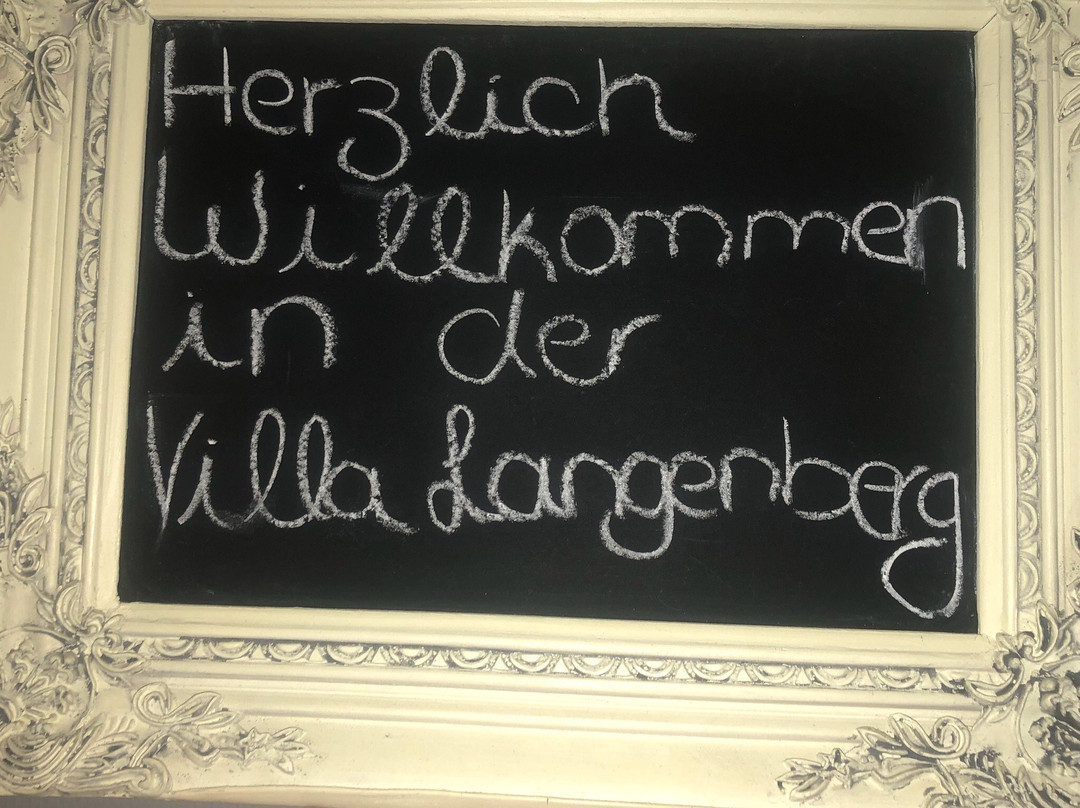 Herzlich
Willkommen
in der
Villa Langenberg